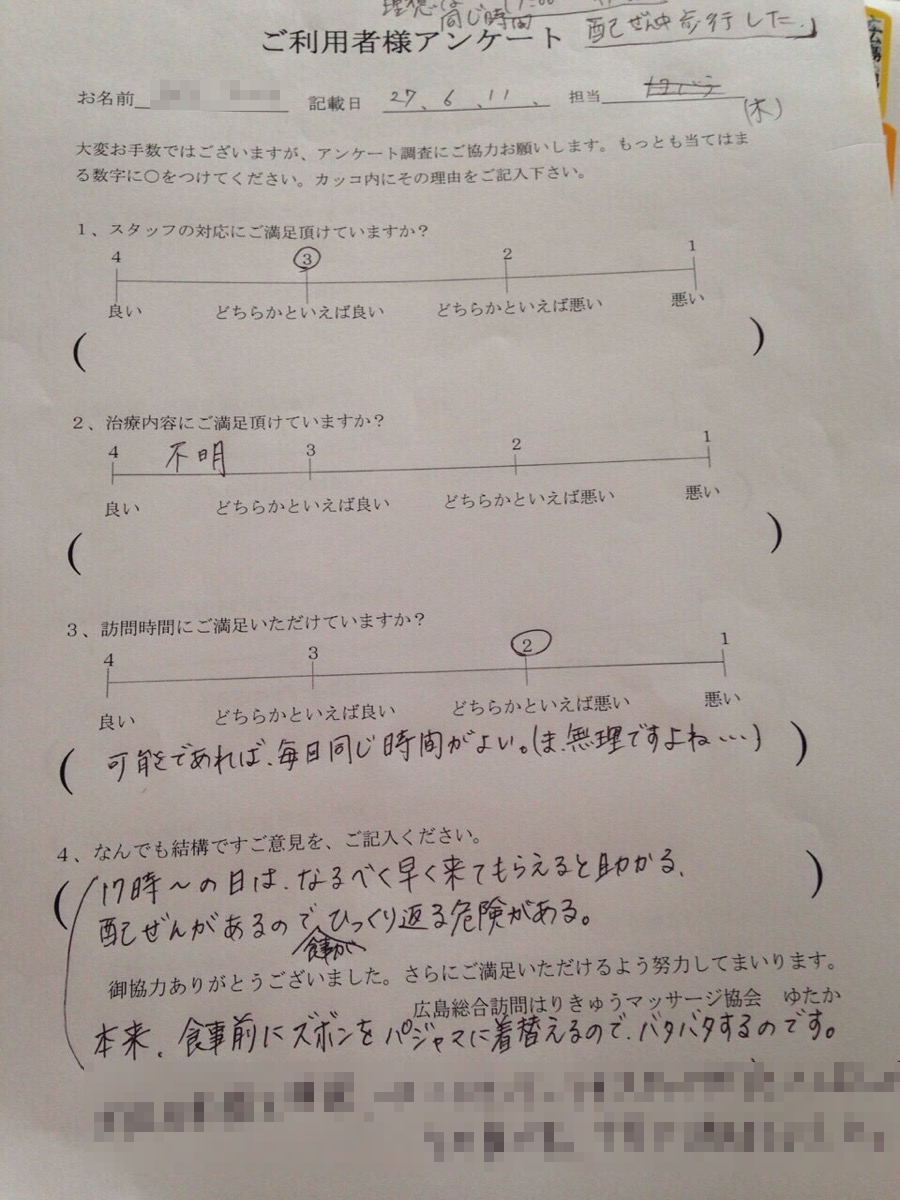 理想は
同じ時間
配ぜん中歩行した。
ご利用者様アンケート
お名前 記載日 27、6、11、 担当
(木)
大変お手数ではございますが、アンケート調査にご協力お願いします。もっとも当てはま
る数字に〇をつけてください。カッコ内にその理由をご記入下さい。
1、スタッフの対応にご満足頂けていますか?
4 3 2 1
良い どちらかといえば良い どちらかといえば悪い 悪い
( )
2、治療内容にご満足頂けていますか?
4 不明 3 2 1
良い どちらかといえば良い どちらかといえば悪い 悪い
( )
3、訪問時間にご満足いただけていますか?
4 3 2 1
良い どちらかといえば良い どちらかといえば悪い 悪い
(可能であれば、毎日同じ時間がよい。(ま、無理ですよね…))
4、なんでも結構ですご意見を、ご記入ください。
(17時〜の日は、なるべく早く来てもらえると助かる、)
配ぜんがあるので、ひっくり返る危険がある。
食事が
御協力ありがとうございました。さらにご満足いただけるよう努力してまいります。
広島総合訪問はりきゅうマッサージ協会 ゆたか
本来、食事前にズボンをパジャマに着替えるので、バタバタするのです。